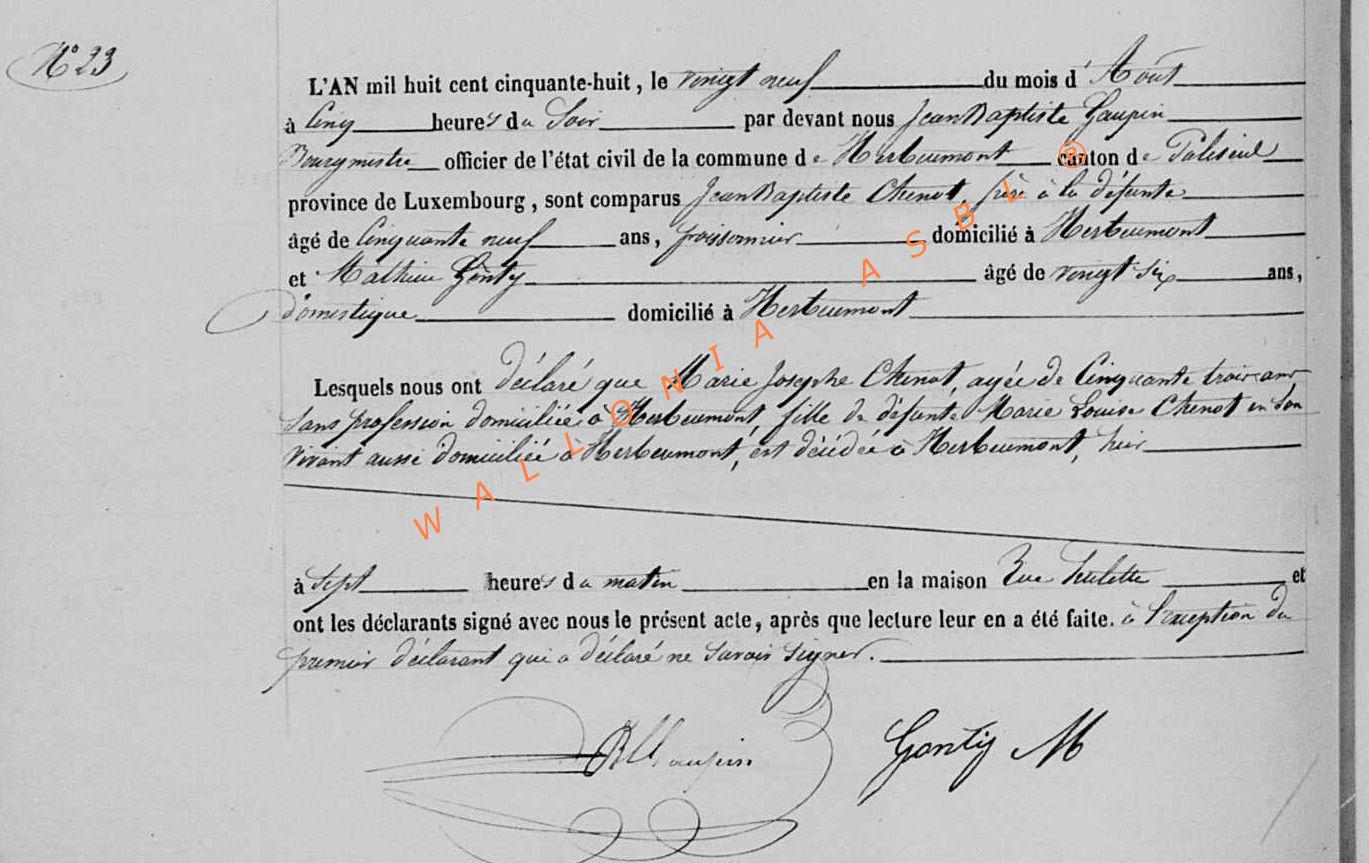 N° 23
L'AN mil huit cent cinquante-huit, le vingt neuf du mois d'Août
à Cinq heures du Soir par devant nous Jean Baptiste Gaupin
Bourgmestre officier de l'état civil de la commune de Herbeumont canton de Paliseul
province de Luxembourg, sont comparus Jean Baptiste Chenot, frère à la défunte
âgé de Cinquante neuf ans, poissonnier domicilié à Herbeumont
et Mathieu Gonty âgé de vingt six ans,
domestique domicilié à Herbeumont
Lesquels nous ont déclaré que Marie Josephe Chenot, agée de Cinquante trois ans
Sans profession domiciliée à Herbeumont, fille de défunte Marie Louise Chenot en Son
vivant aussi domiciliée à Herbeumont, est décédée à Herbeumont, hier
à Sept heures du matin en la maison Rue et
ont les déclarants signé avec nous le présent acte, après que lecture leur en a été faite. à l'exception du
premier déclarant qui a déclaré ne Savoir Signer.
Gontiy M
WALLONIA ASBL ®